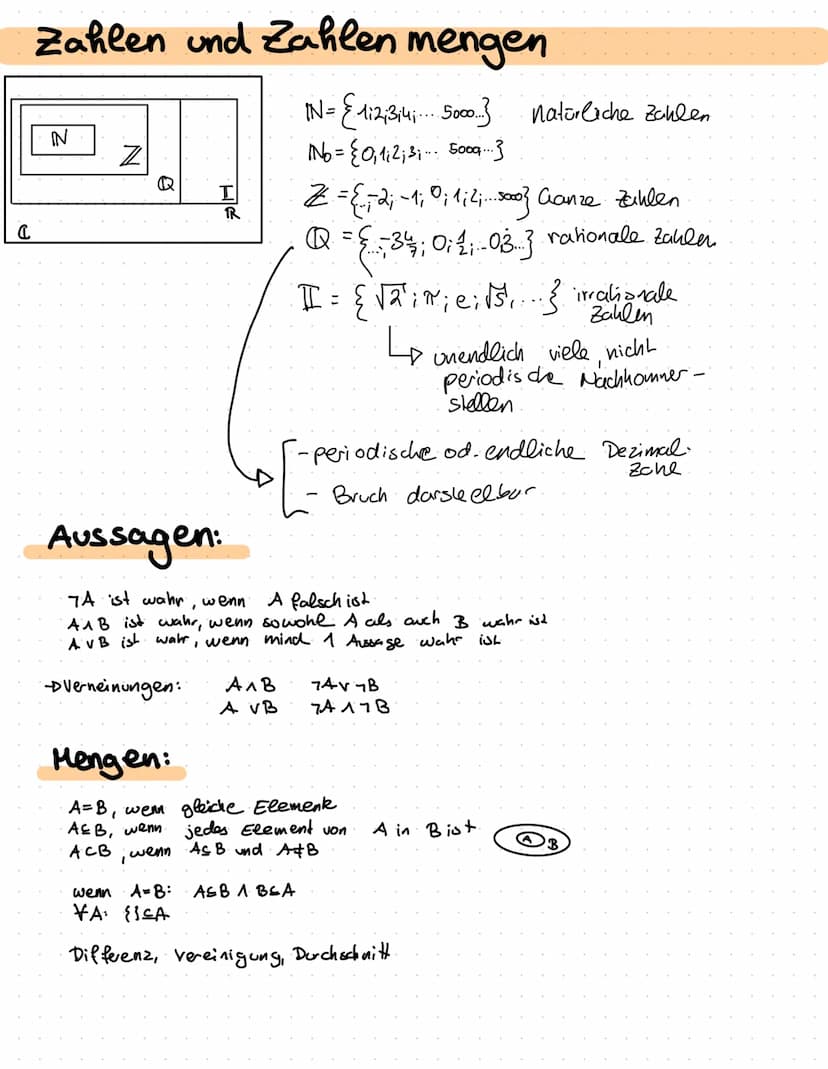 Zahlen und Zahlenmengen
N
Z
Q
I
R
C
N={1;2;3;4;... 5000...} natürliche Zahlen
N₀={0,1;2;3;... 5000...}
Z ={...;-2; -1; 0; 1; 2;...5000} Ganze Zahlen
Q ={...;-3 4/7; 0; 1/2;...0,3̇...} rationale Zahlen
I = {√2; π; e; √5, ...} irrationale
Zahlen
unendlich viele, nicht
periodische Nachkommer-
stellen
-periodische od. endliche Dezimal-
Zahl
- Bruch darstellbar
Aussagen:
¬A ist wahr, wenn A falsch ist
A∧B ist wahr, wenn sowohl A als auch B wahr ist
A∨B ist wahr, wenn mind 1 Aussage wahr ist
→Verneinungen: A∧B ¬A∨¬B
A∨B ¬A∧¬B
Mengen:
A=B, wenn gleiche Elemente
A⊆B, wenn jedes Element von A in B ist
A B
A⊂B, wenn A⊆B und A≠B
wenn A=B: A⊆B ∧ B⊆A
∀A: {}⊆A
Differenz, Vereinigung, Durchschnitt